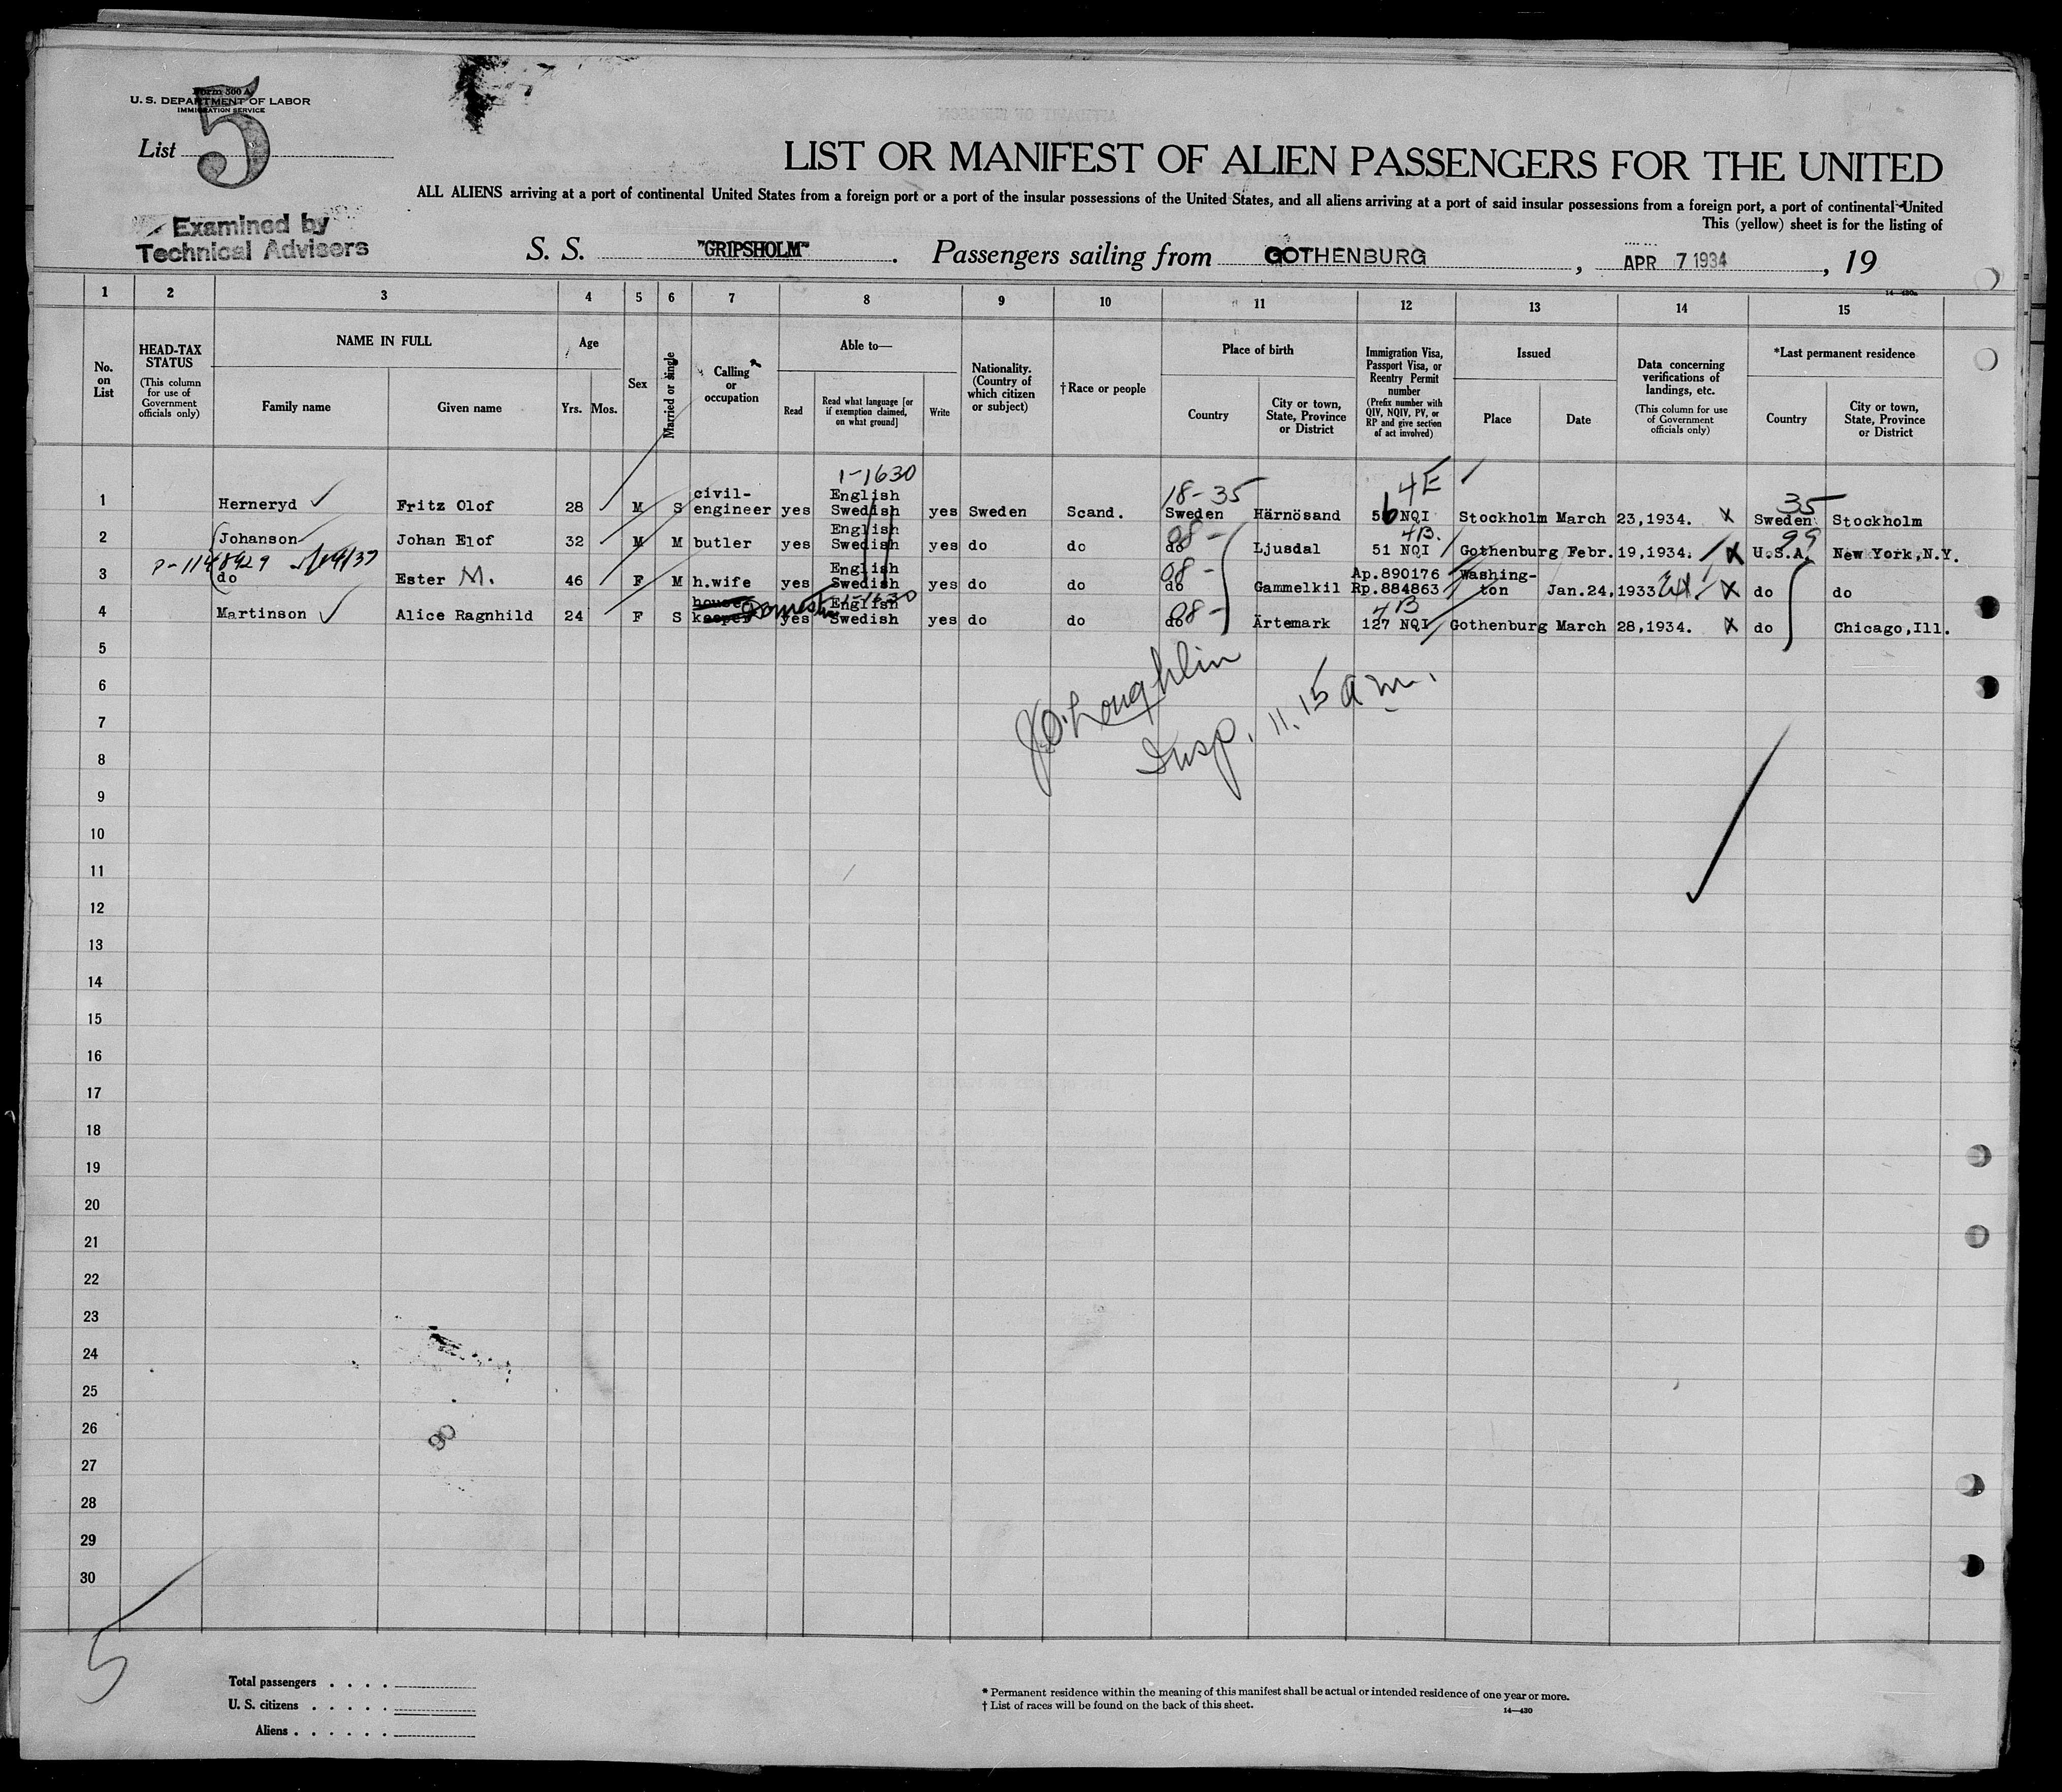 Form 500 A
U. S. DEPARTMENT OF LABOR
IMMIGRATION SERVICE
List 5
LIST OR MANIFEST OF ALIEN PASSENGERS FOR THE UNITED
ALL ALIENS arriving at a port of continental United States from a foreign port or a port of the insular possessions of the United States, and all aliens arriving at a port of said insular possessions from a foreign port, a port of continental United
This (yellow) sheet is for the listing of
Examined by
Technical Advisers
S. S. "GRIPSHOLM". Passengers sailing from GOTHENBURG, APR 7 1934, 19
14—430a
1 2 3 4 5 6 7 8 9 10 11 12 13 14 15
No. on List
HEAD-TAX STATUS (This column for use of Government officials only)
NAME IN FULL
Family name Given name
Age
Yrs. Mos.
Sex
Married or single
Calling or occupation
Able to—
Read
Read what language [or if exemption claimed, on what ground]
Write
Nationality. (Country of which citizen or subject)
†Race or people
Place of birth
Country
City or town, State, Province or District
Immigration Visa, Passport Visa, or Reentry Permit number (Prefix number with QIV, NQIV, PV, or RP and give section of act involved)
Issued
Place Date
Data concerning verifications of landings, etc. (This column for use of Government officials only)
*Last permanent residence
Country
City or town, State, Province or District
1-1630 18-35 4E 35
1 Herneryd Fritz Olof 28 M S civil-engineer yes English Swedish yes Sweden Scand. Sweden Härnösand 56 NQI Stockholm March 23,1934. X Sweden Stockholm
08- 4B. 99
2 Johanson Johan Elof 32 M M butler yes English Swedish yes do do do Ljusdal 51 NQI Gothenburg Febr.19,1934. X U.S.A. New York,N.Y.
P-1148929
08-
3 do Ester M. 46 F M h.wife yes English Swedish yes do do do Gammelkil Ap.890176 Rp.884863 Washington Jan.24,1933 X do do
1-1630 08- 4B
4 Martinson Alice Ragnhild 24 F S house keeper domestic yes English Swedish yes do do do Ärtemark 127 NQI Gothenburg March 28,1934. X do Chicago,Ill.
5
6
J O'Loughlin
7
Insp. 11.15 a m.
8
9
10
11
12
13
14
15
16
17
18
19
20
21
22
23
24
25
26
90
27
28
29
30
5
Total passengers . . . .
U. S. citizens . . . . .
Aliens . . . . . .
* Permanent residence within the meaning of this manifest shall be actual or intended residence of one year or more.
† List of races will be found on the back of this sheet.
14—430